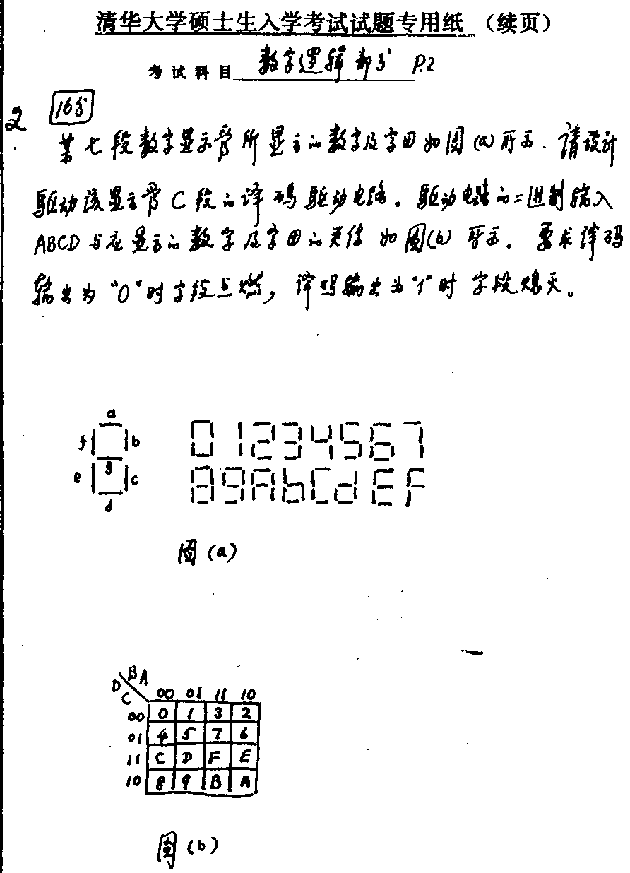 清华大学硕士生入学考试试题专用纸 (续页)
考试科目 数字逻辑部分 P.2
2. 16分
某七段数字显示管所显示的数字及字母如图(a)所示. 请设计
驱动该显示管C段的译码驱动电路. 驱动电路的二进制输入
ABCD与应显示的数字及字母的关系如图(b)所示. 要求译码
输出为"0"时字段点燃, 译码输出为"1"时字段熄灭。
a
f b
g
e c
d
0 1 2 3 4 5 6 7
8 9 A b C d E F
图(a)
BA
DC 00 01 11 10
00 0 1 3 2
01 4 5 7 6
11 C D F E
10 8 9 B A
图(b)